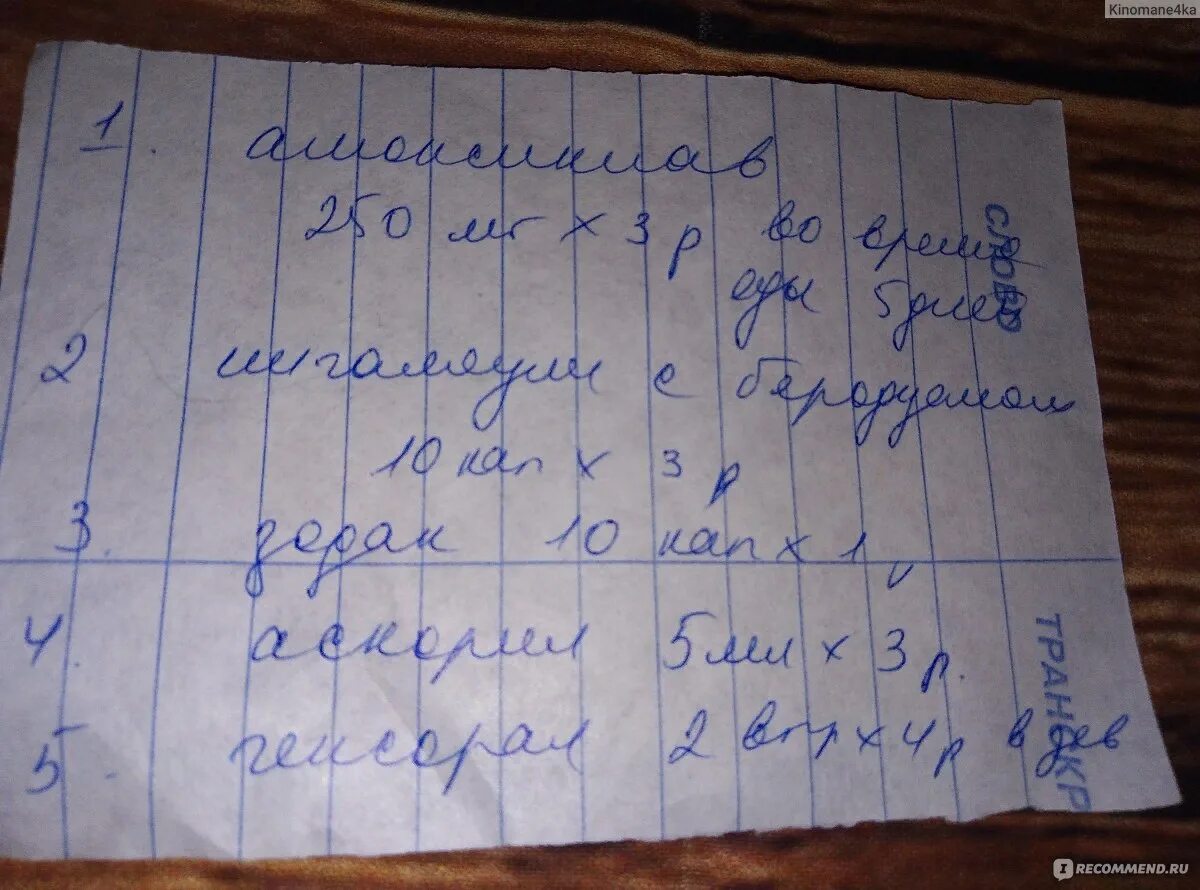 Kinomane4ka
1. амоксиклав
250 мг х 3 р во время
еды 5 дней
2 ингаляции с беродуалом
10 кап х 3 р
3. зодак 10 кап х 1
4. аскорил 5 мл х 3 р.
5. гексорал 2 впр х 4 р в
СЛОВО
ТРАНСКР
IRECOMMEND.RU